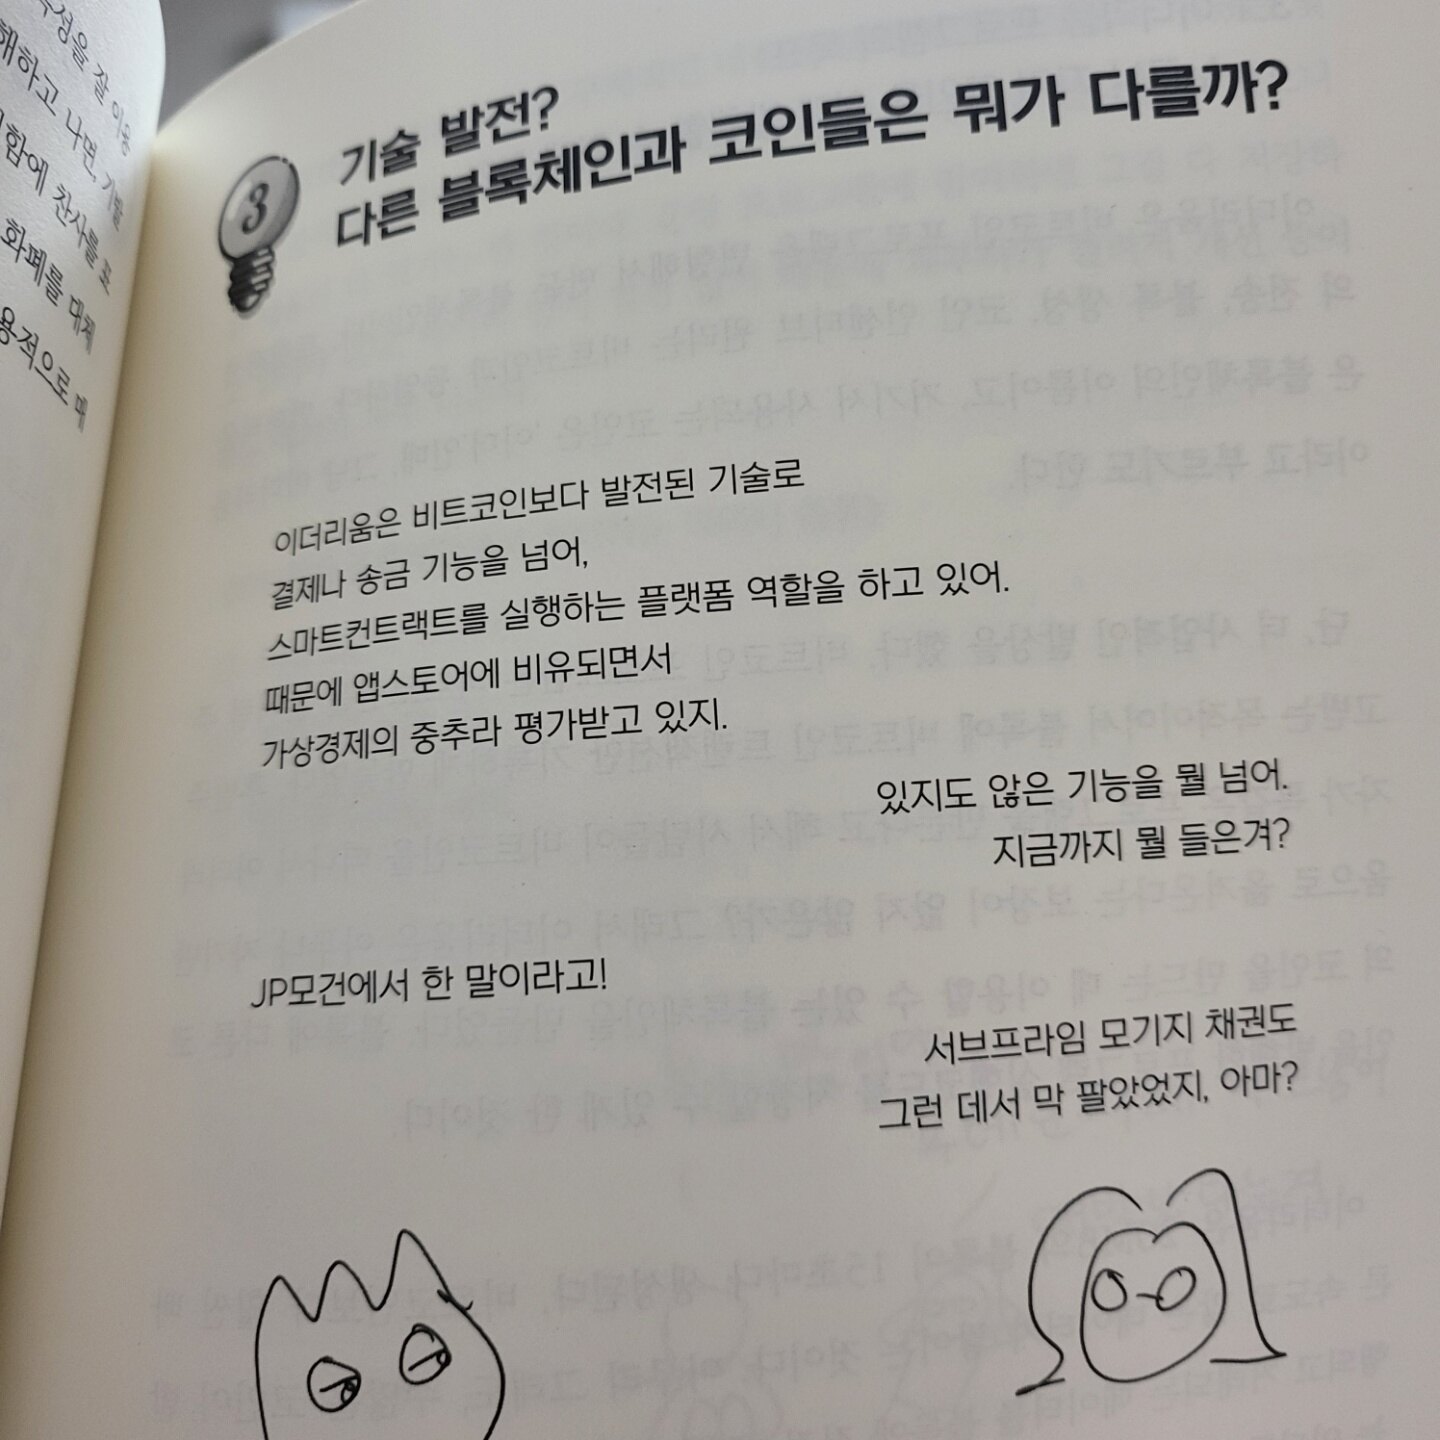 성을 잘 이용
해하고 나면, 기발
함에 찬사를 표
화폐를 대체
용적으로 매
3
기술 발전?
다른 블록체인과 코인들은 뭐가 다를까?
이더리움은 비트코인보다 발전된 기술로
결제나 송금 기능을 넘어,
스마트컨트랙트를 실행하는 플랫폼 역할을 하고 있어.
때문에 앱스토어에 비유되면서
가상경제의 중추라 평가받고 있지.
있지도 않은 기능을 뭘 넘어.
지금까지 뭘 들은겨?
JP모건에서 한 말이라고!
서브프라임 모기지 채권도
그런 데서 막 팔았었지, 아마?